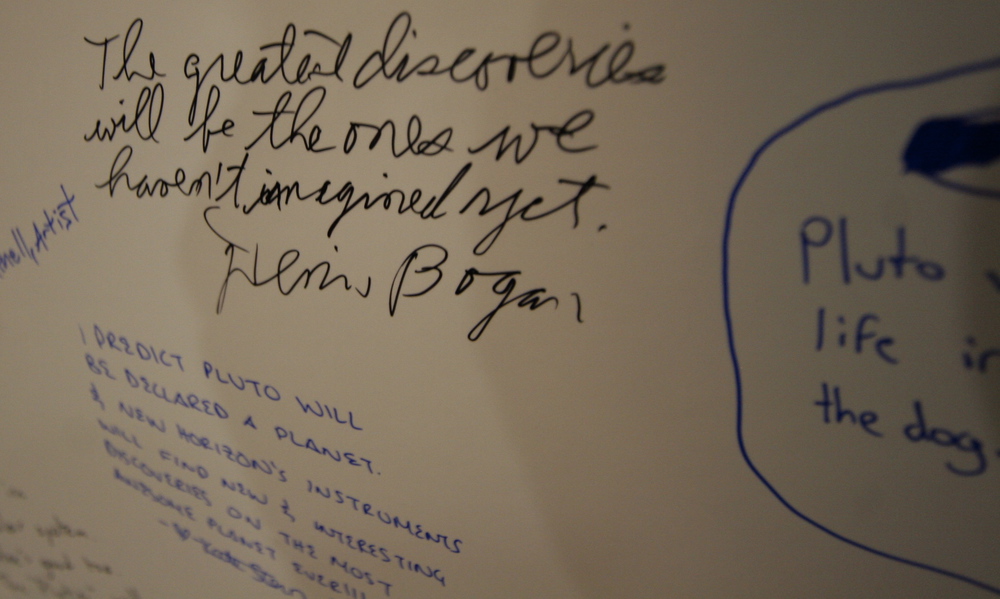 The greatest discoveries
will be the ones we
haven't imagined yet.
Denis Bogan
Artist
I PREDICT PLUTO WILL
BE DECLARED A PLANET.
& NEW HORIZON'S INSTRUMENTS
WILL FIND NEW & INTERESTING
DISCOVERIES ON THE MOST
AWESOME PLANET EVER!!!
Pluto
life in
the dog.
system